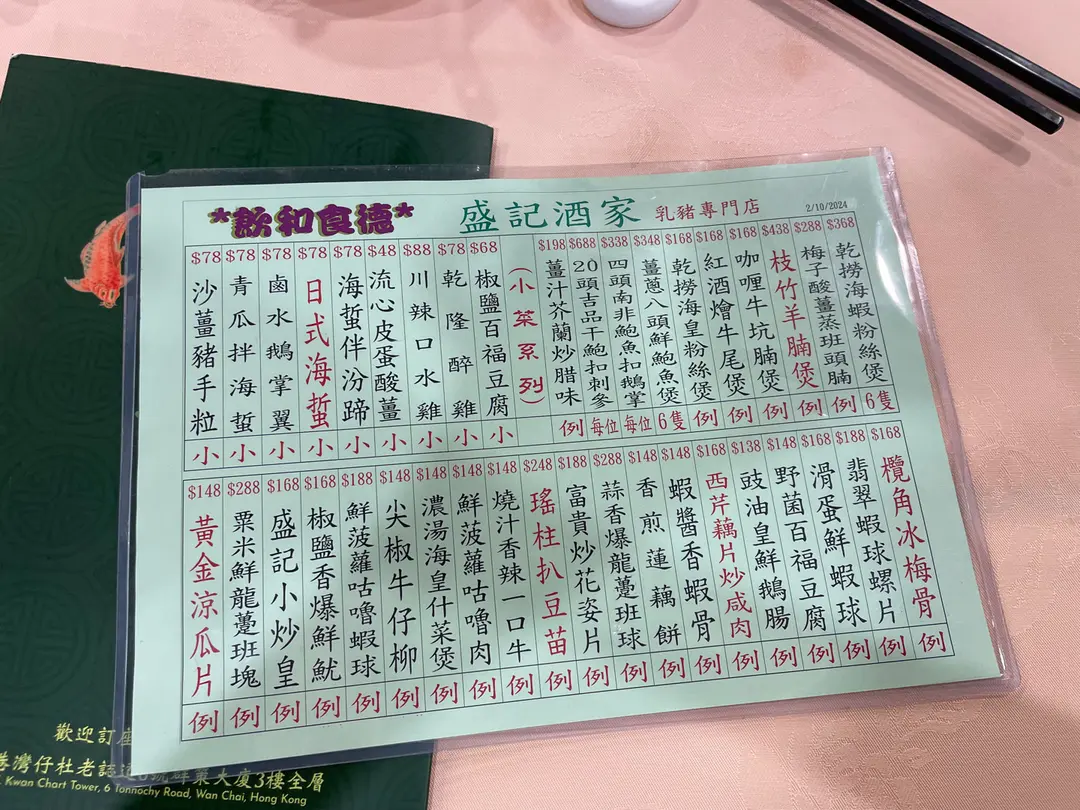 *飲和食德*
盛記酒家
乳豬專門店
2/10/2024
$368 乾撈海蝦粉絲煲 6隻
$288 梅子酸薑蒸班頭腩 例
$438 枝竹羊腩煲 例
$168 咖喱牛坑腩煲 例
$168 紅酒燴牛尾煲 例
$168 乾撈海皇粉絲煲 例
$348 薑蔥八頭鮮鮑魚煲 6隻
$338 四頭南非鮑魚扣鵝掌 每位
$688 20頭吉品干鮑扣刺參 每位
$198 薑汁芥蘭炒腊味 例
(小菜系列)
$68 椒鹽百福豆腐 小
$78 乾隆醉雞 小
$88 川辣口水雞 小
$48 流心皮蛋酸薑 小
$78 海蜇伴汾蹄 小
$78 日式海蜇 小
$78 鹵水鵝掌翼 小
$78 青瓜拌海蜇 小
$78 沙薑豬手粒 小
$168 欖角冰梅骨 例
$188 翡翠蝦球螺片 例
$168 滑蛋鮮蝦球 例
$148 野菌百福豆腐 例
$138 豉油皇鮮鵝腸 例
$168 西芹藕片炒咸肉 例
$148 蝦醬香蝦骨 例
$148 香煎蓮藕餅 例
$288 蒜香爆龍躉班球 例
$188 富貴炒花姿片 例
$248 瑤柱扒豆苗 例
$148 燒汁香辣一口牛 例
$148 鮮菠蘿咕嚕肉 例
$148 濃湯海皇什菜煲 例
$148 尖椒牛仔柳 例
$188 鮮菠蘿咕嚕蝦球 例
$168 椒鹽香爆鮮魷 例
$168 盛記小炒皇 例
$288 粟米鮮龍躉班塊 例
$148 黃金涼瓜片 例
歡迎訂座
港灣仔杜老誌道6號群策大廈3樓全層
Kwan Chart Tower, 6 Tonnochy Road, Wan Chai, Hong Kong